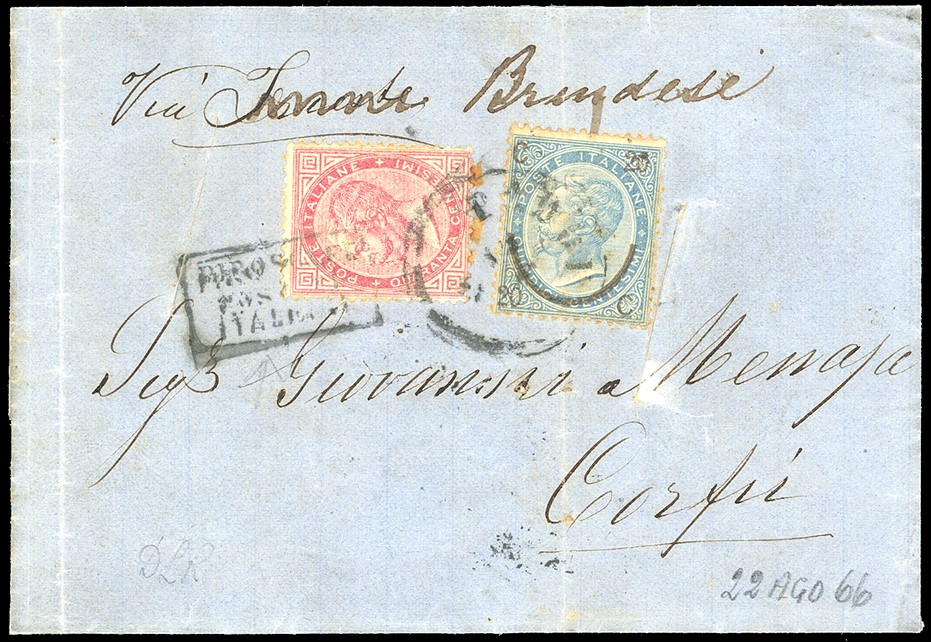 Via Brindesi
POSTE ITALIANE
QUARANTA CENTESIMI
POSTE ITALIANE
QUINDICI CENTESIMI
C 20
C
PIROS
POS
ITALI
Sigr Giovanni a Menaja
Corfú
DLR
22 AGO 66